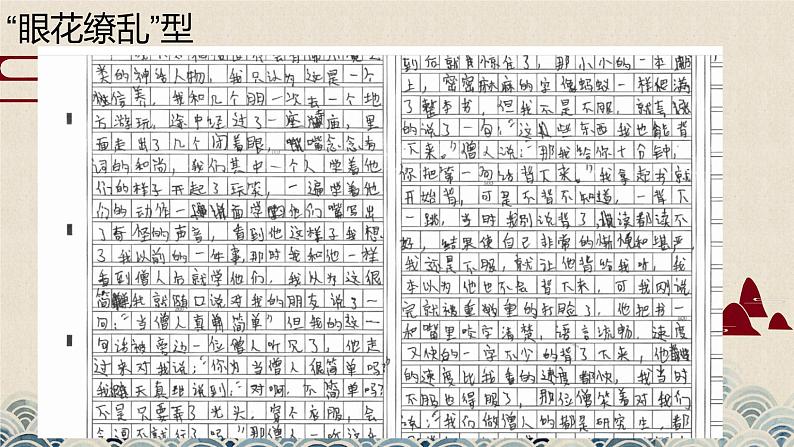 “眼花缭乱”型
类的神话人物，我只认为这是一个
信养，我和几个朋一次去一个地
方游玩，途中经过了一座庙，里
面走出了几个闭着眼，嘴念念有
词的和尚，我们其中一个人学着他
们的样子开起了玩笑，一遍学着他
们的动作一边学他们嘴写出
了奇怪的声音，看到他这样子我想
了我以前的一件事，那时我和他一样
看到僧人后就学他们，我以为这很
简单我就随口说对我的朋友说了一
句：“当僧人真简单”但我的这一
句话被旁边一位僧人听见了，他走
过来对我说：“你为当僧人很简单吗？”
我天真理说到：“对啊，不简单吗？
不是只要弄了光头，穿个衣服，会
念词不就行了吗？”那僧人一听这
到后就惊住了，那小小的一本
上，密密麻麻的字像蚂蚁一样爬满
了整本书，但我不是不服，就
的说了一句：“这些东西我也能背
下来。”僧人说：“那我给你十分钟，
你把第一句话背下来。”我拿起书就
开始背，可是不背不知道，一背下
一跳，当时我别说背了，读都读不
好，结果使自己非常的惭愧和
我还是不服，就让他背给我听，我
本以为他也不会背下来，可我刚说
完就被重重的打脸了，他把书一
和嘴里咬字清楚，语言流畅，速度
又快的一字不少的背了下来，他
的速度比我看的速度都快，我当时
不服也得服了，那位僧笑着对我
说：“我们做僧人的都是研究生，都